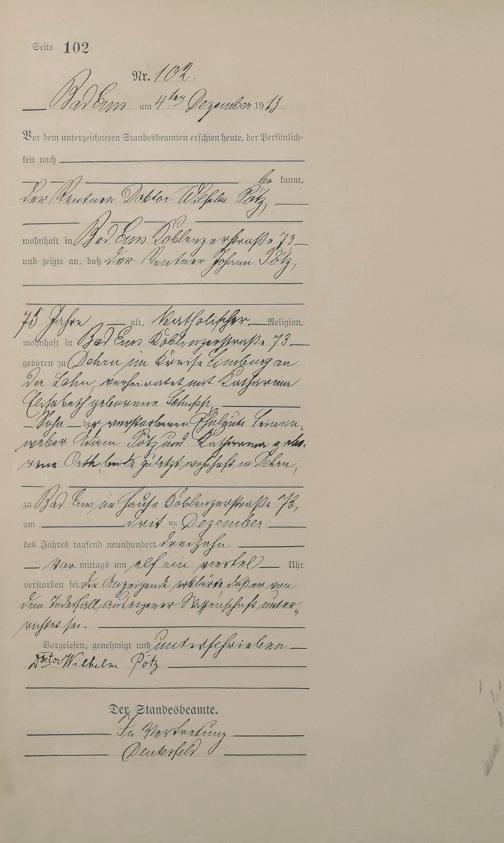 Seite 102
Nr. 102.
Bad Ems am 4ten Dezember 1913.
Vor dem unterzeichneten Standesbeamten erschien heute, der Persönlich-
keit nach
be kannt,
der Rentner Doktor Wilhelm Pötz,
wohnhaft in Bad Ems Koblenzerstraße 73
und zeigte an, daß der Rentner Johann Pötz,
75 Jahre alt, katholischer Religion,
wohnhaft in Bad Ems Koblenzerstraße 73
geboren zu Dehrn im Kreise Limburg an
der Lahn, verheiratet mit Katharina
Elisabeth geborene
Sohn der verstorbenen Eheleute Leinen
weber Adam Pötz und Katharina gebo
rene beide zuletzt wohnhaft in Dehrn,
zu Bad Ems im Hause Koblenzerstraße 73,
am drei ten Dezember
des Jahres tausend neunhundert dreizehn
vor mittags um elf ein viertel Uhr
verstorben sei. Der Anzeigende erklärte daß er von
dem Todesfall aus eigener Wissenschaft unter,
richtet sei.
Vorgelesen, genehmigt und unterschrieben
Doktor Wilhelm Pötz
Der Standesbeamte.
In Vertretung